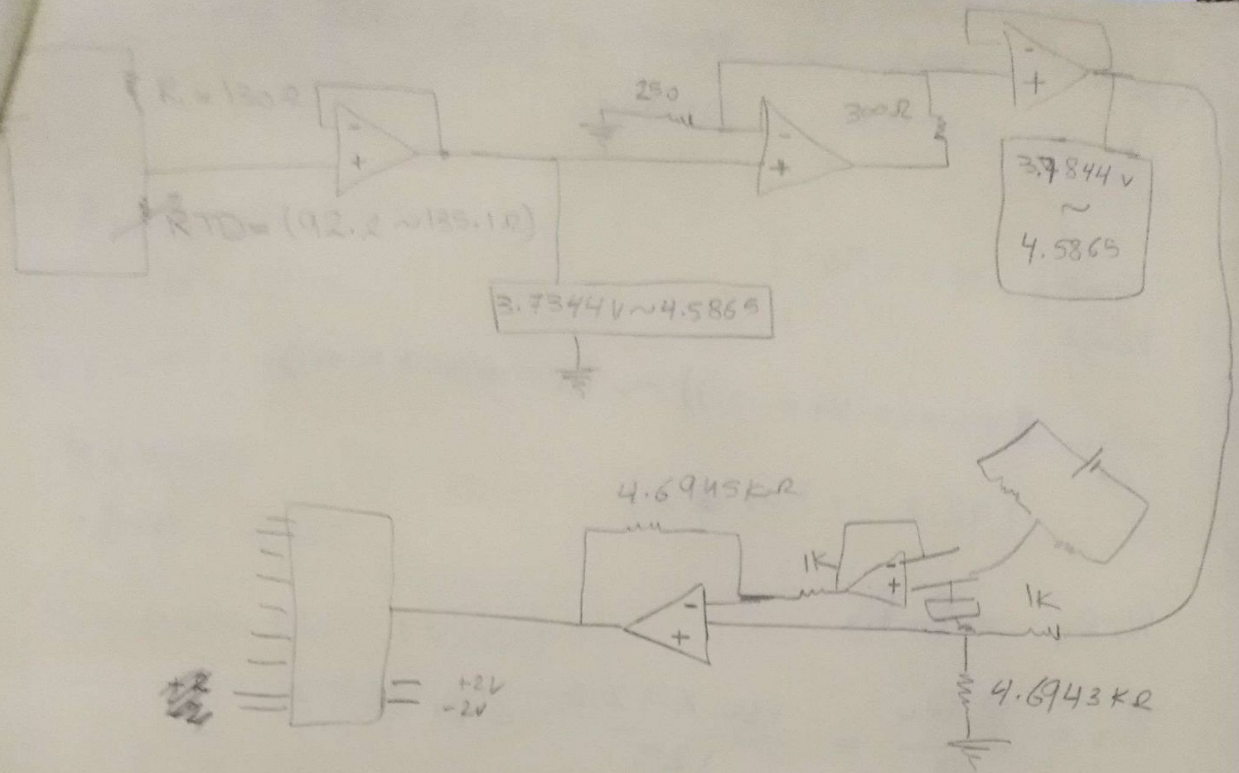 R₁ = 130Ω
RTD = (92.2 ~ 135.1Ω)
250
300Ω
3.7344V ~ 4.5865
3.7844V
~
4.5865
4.6945KΩ
1K
1K
4.6943KΩ
+2V
-2V
-
+
-
+
-
+
-
+
-
+